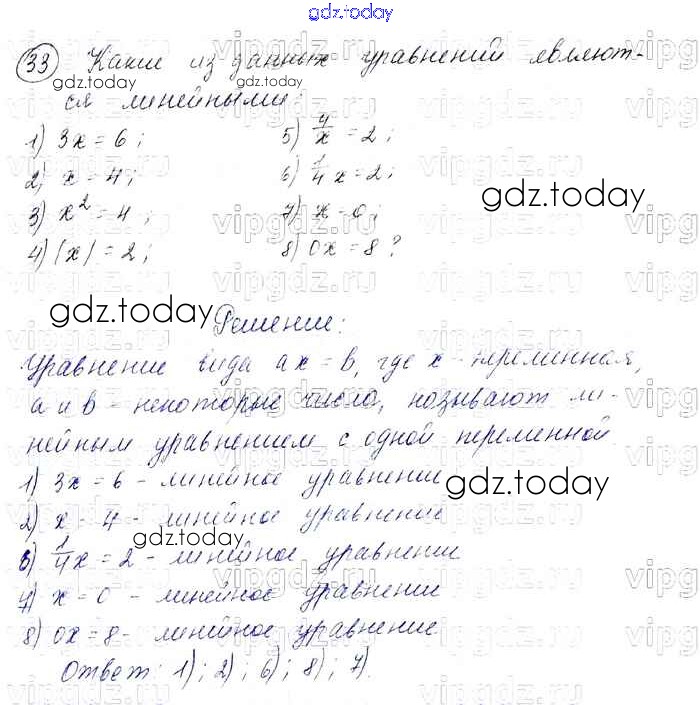 gdz.today
33 Какие из данных уравнений являют-
ся линейными:
1) 3x = 6;
2) x = 4;
3) x² = 4;
4) |x| = 2;
5) 4/x = 2;
6) 1/4 x = 2;
7) x = 0;
8) 0x = 8?
gdz.today
gdz.today
gdz.today
Решение:
Уравнение вида ax = b, где x - переменная,
a и b - некоторые числа, называют ли-
нейным уравнением с одной переменной
1) 3x = 6 - линейное уравнение
gdz.today
2) x = 4 - линейное уравнение
6) 1/4 x = 2 - линейное уравнение
7) x = 0 - линейное уравнение
8) 0x = 8 - линейное уравнение
Ответ: 1); 2); 6); 8); 7).
vipgdz.ru